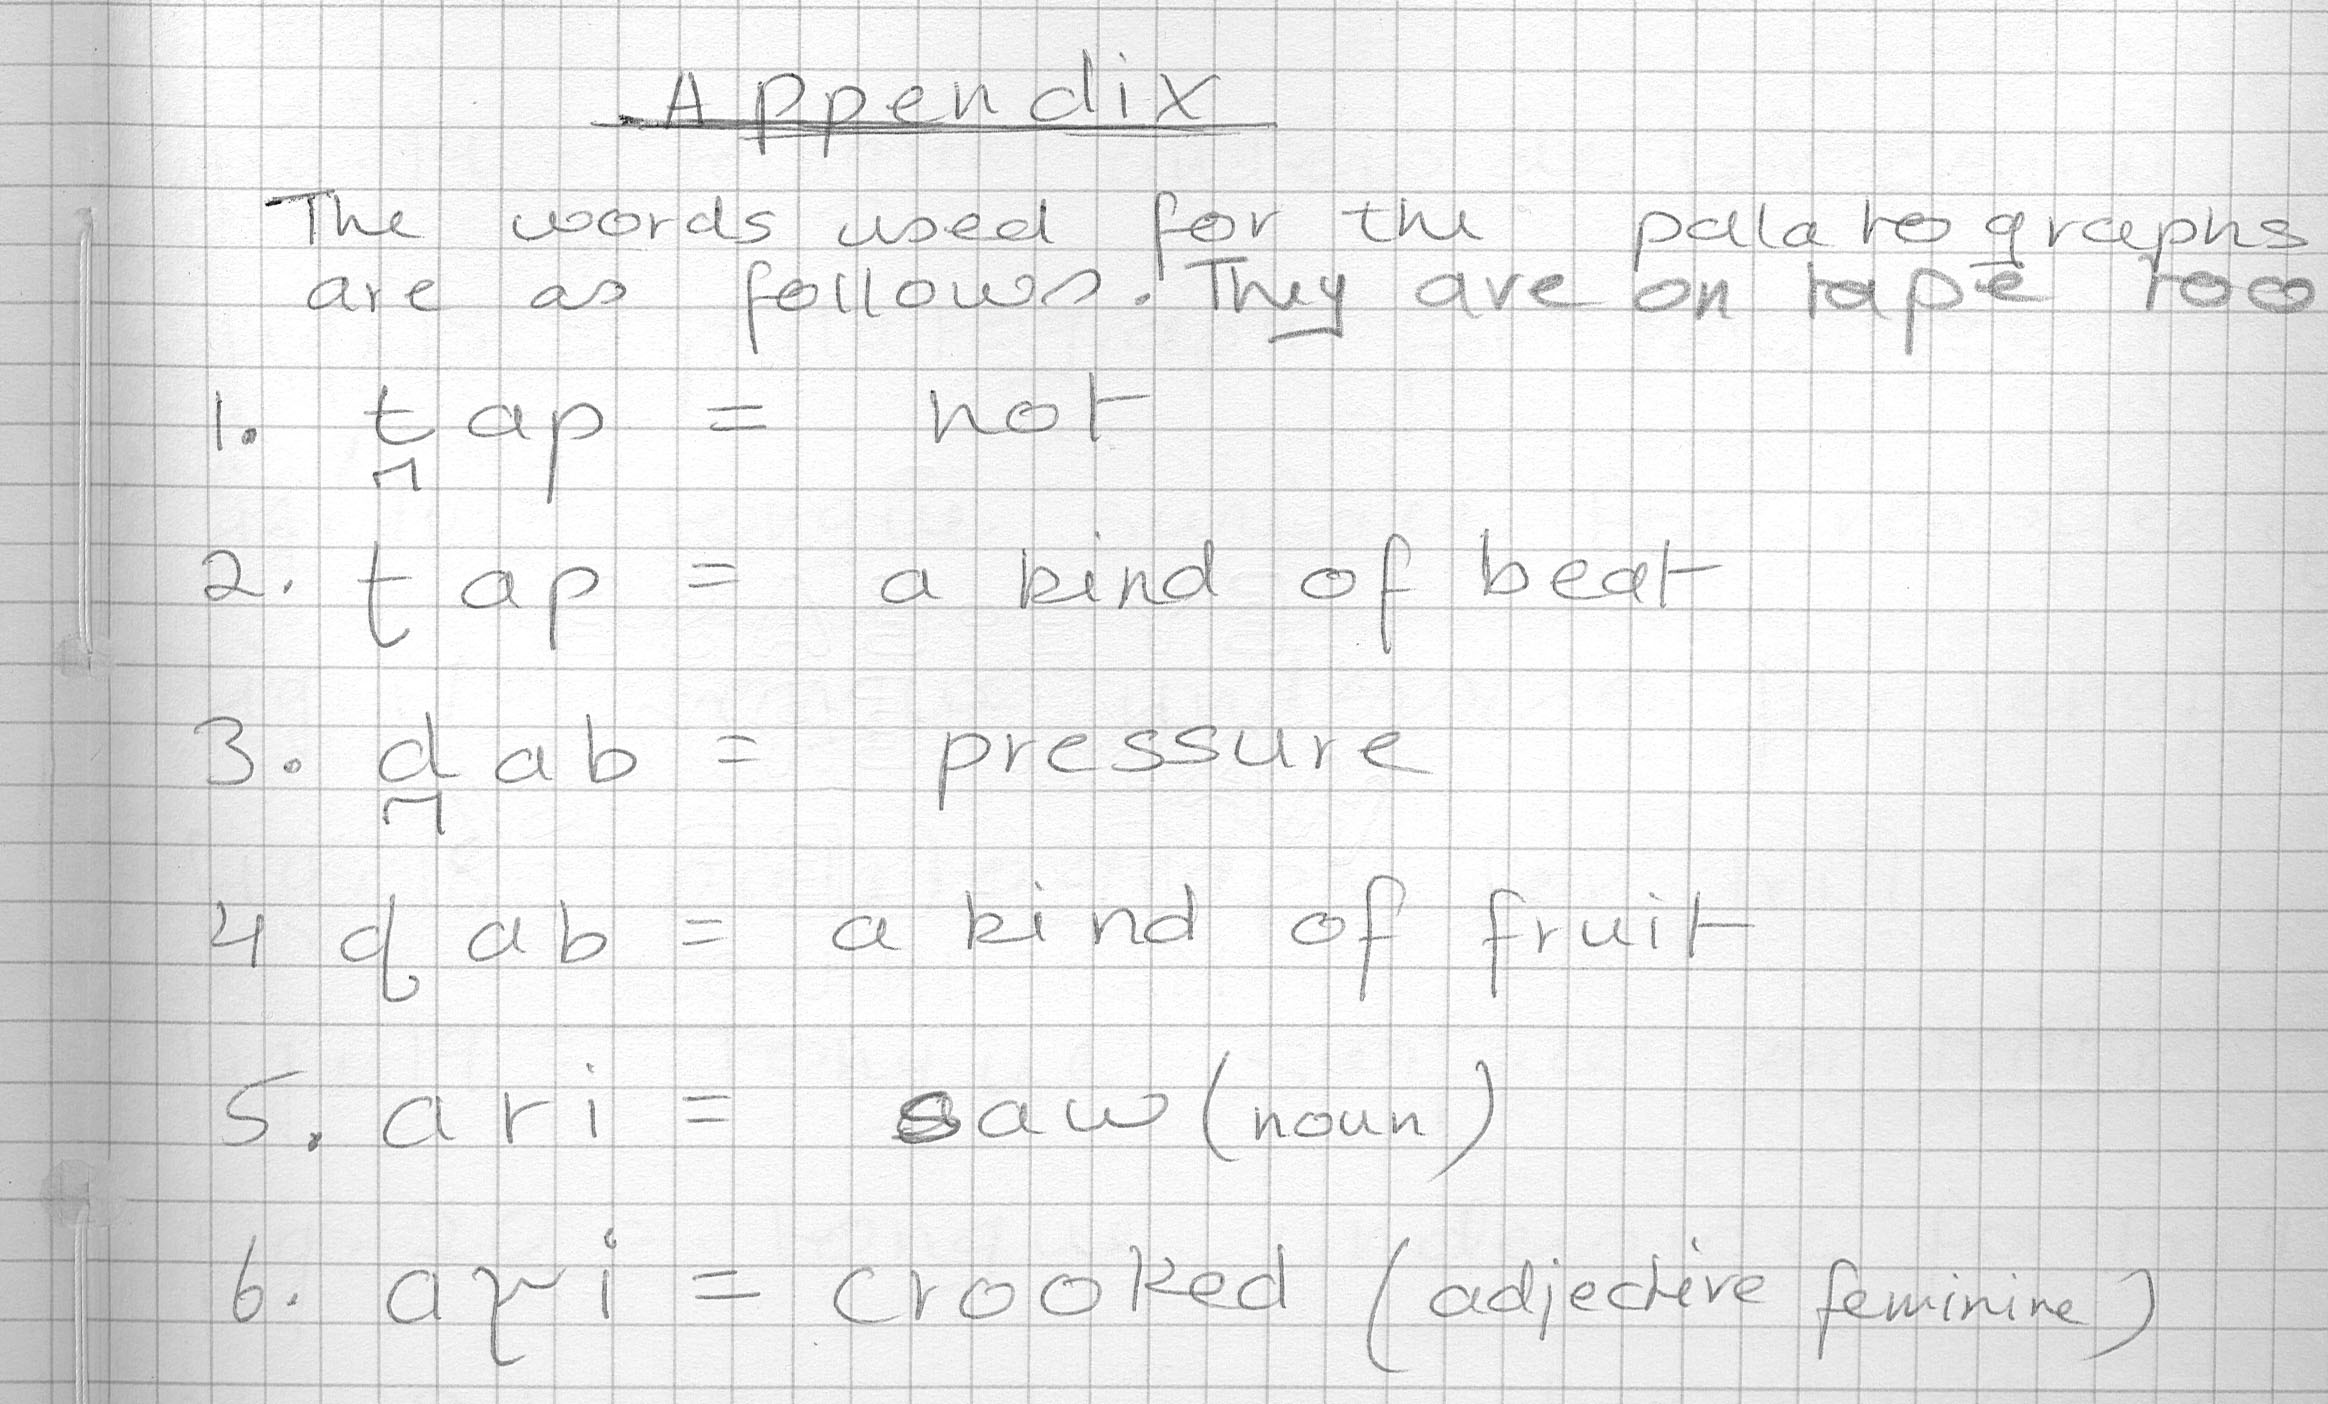 Appendix
The words used for the palatographs
are as follows. They are on tape too
1. t̪ap = not
2. ʈap = a kind of beat
3. d̪ab = pressure
4 ɖab = a kind of fruit
5. ari = saw (noun)
6. aɽi = crooked (adjective feminine)